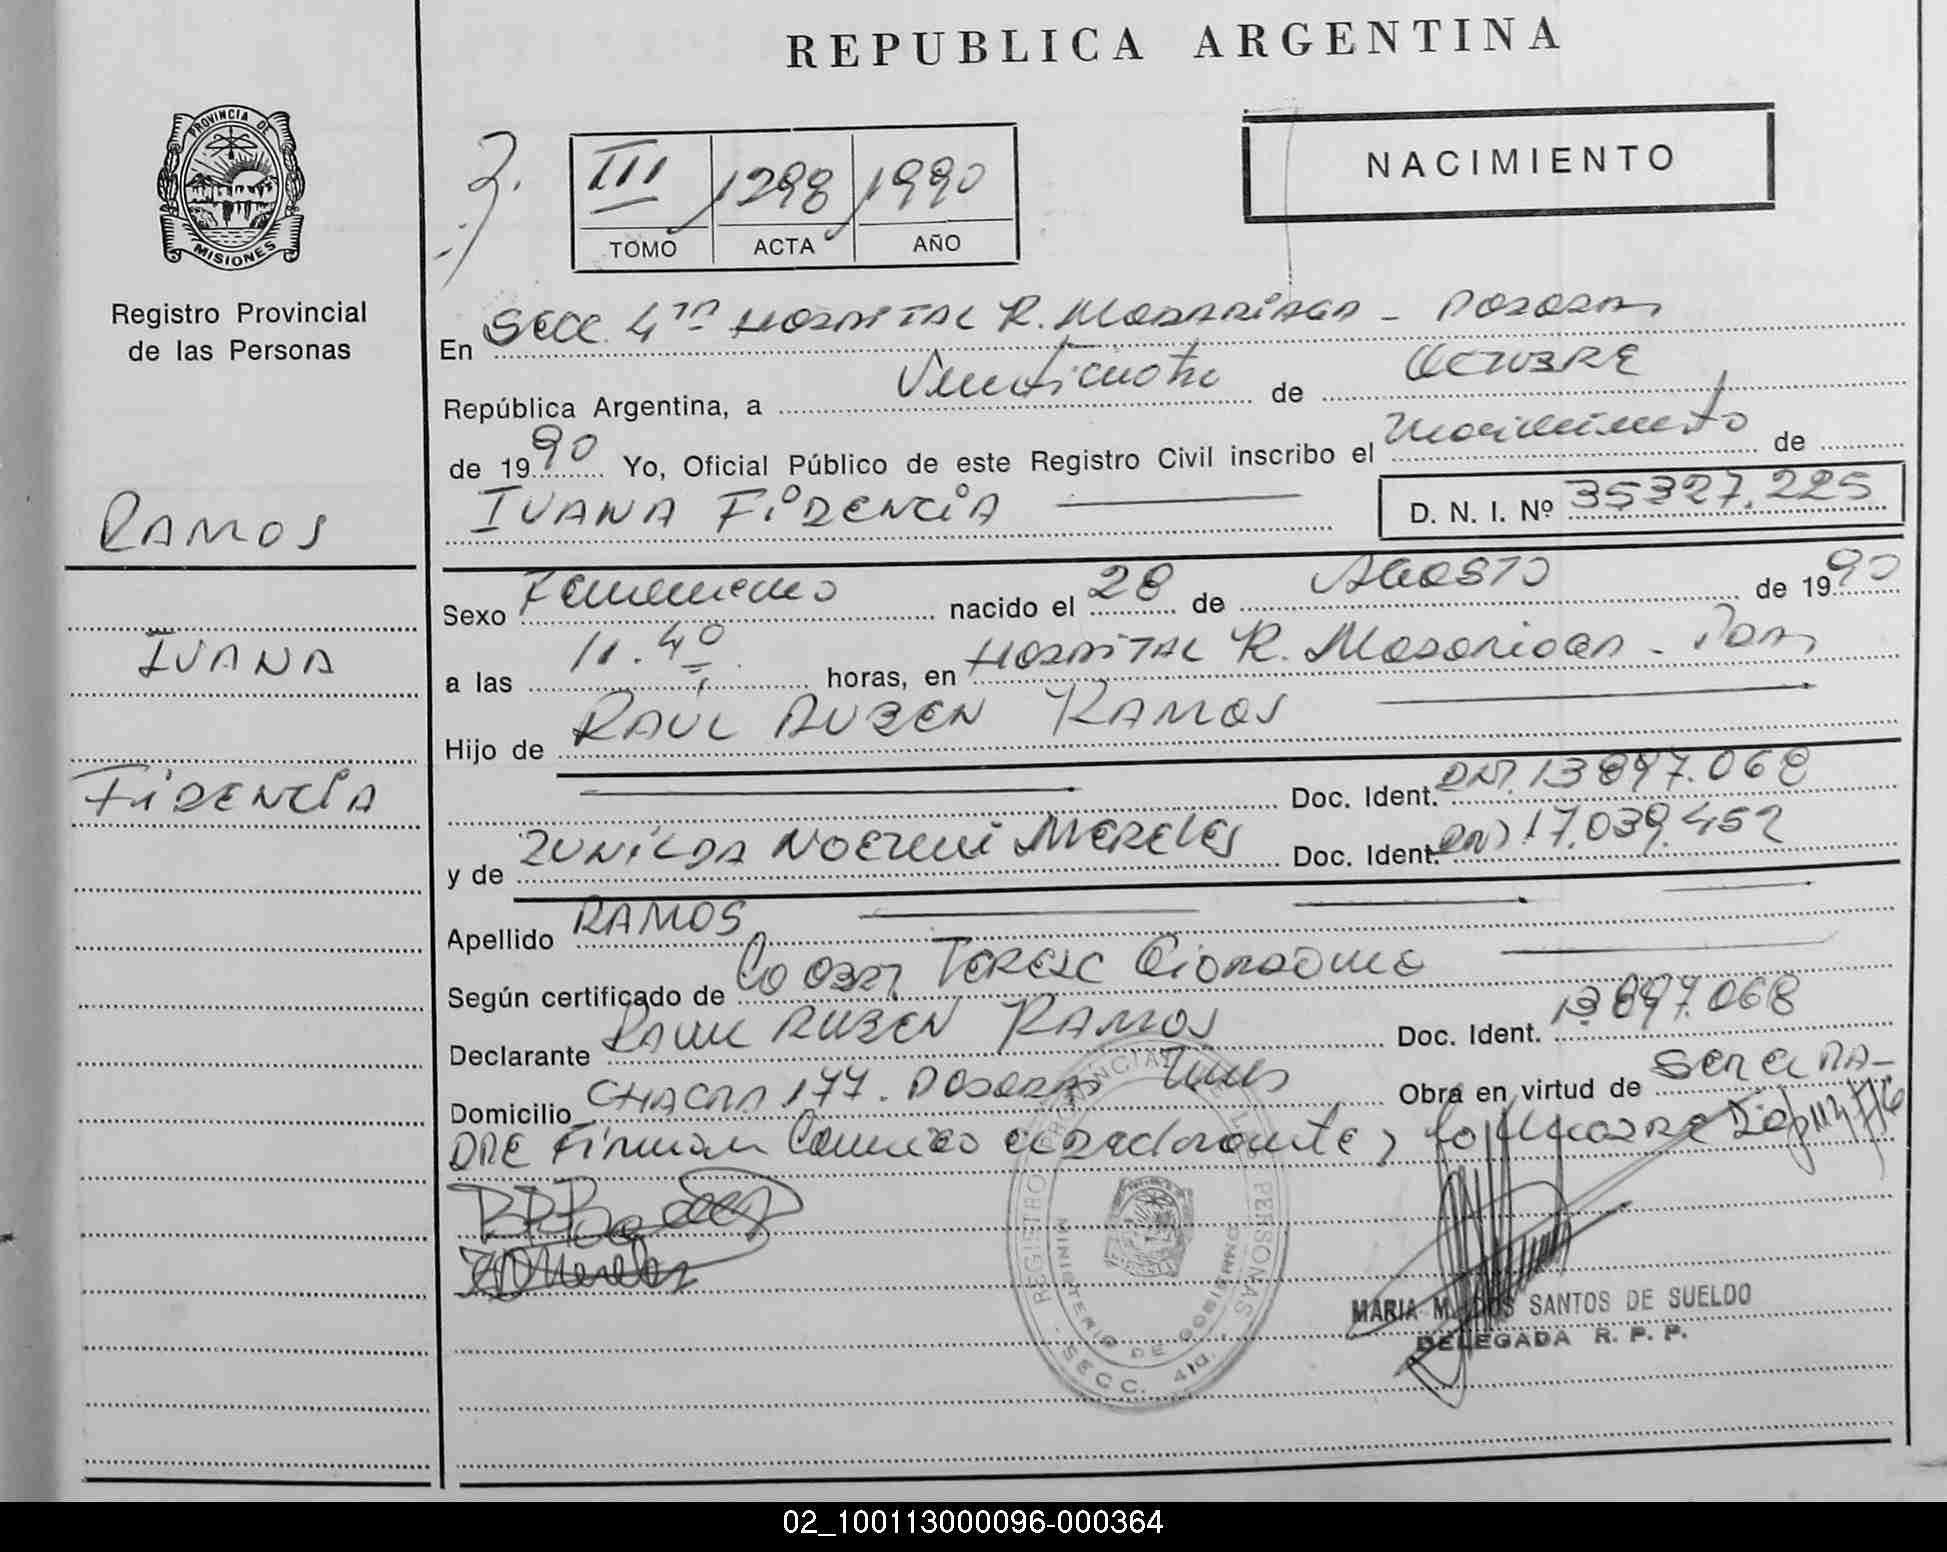 REPUBLICA ARGENTINA
PROVINCIA DE
MISIONES
Registro Provincial
de las Personas
III 1298 1990
TOMO ACTA AÑO
NACIMIENTO
En SECC. 4ta HOSPITAL R. Madariaga - Posadas
República Argentina, a Veinticuatro de OCTUBRE
de 1990 Yo, Oficial Público de este Registro Civil inscribo el nacimiento de
RAMOS
IVANA FIDENCIA
D. N. I. Nº 35327.225
Sexo Femenino nacido el 28 de AGOSTO de 1990
IVANA
a las 11.40 horas, en HOSPITAL R. Madariaga - Pdas
Hijo de RAUL RUBEN RAMOS
FIDENCIA
Doc. Ident. DNI. 13897.068
y de ZUNILDA NOEMI MERELES Doc. Ident. DNI 17.039.452
Apellido RAMOS
Según certificado de Obst TERESA
Declarante RAUL RUBEN RAMOS Doc. Ident. 13897.068
Domicilio CHACRA 177. POSADAS Mnes Obra en virtud de SER el PA-
DRE Firman Conmigo el declarante y la Madre
REGISTRO PROVINCIAL DE LAS PERSONAS
MINISTERIO DE GOBIERNO
SECC. 4ta.
MARIA M. DOS SANTOS DE SUELDO
DELEGADA R. P. P.
02_100113000096-000364